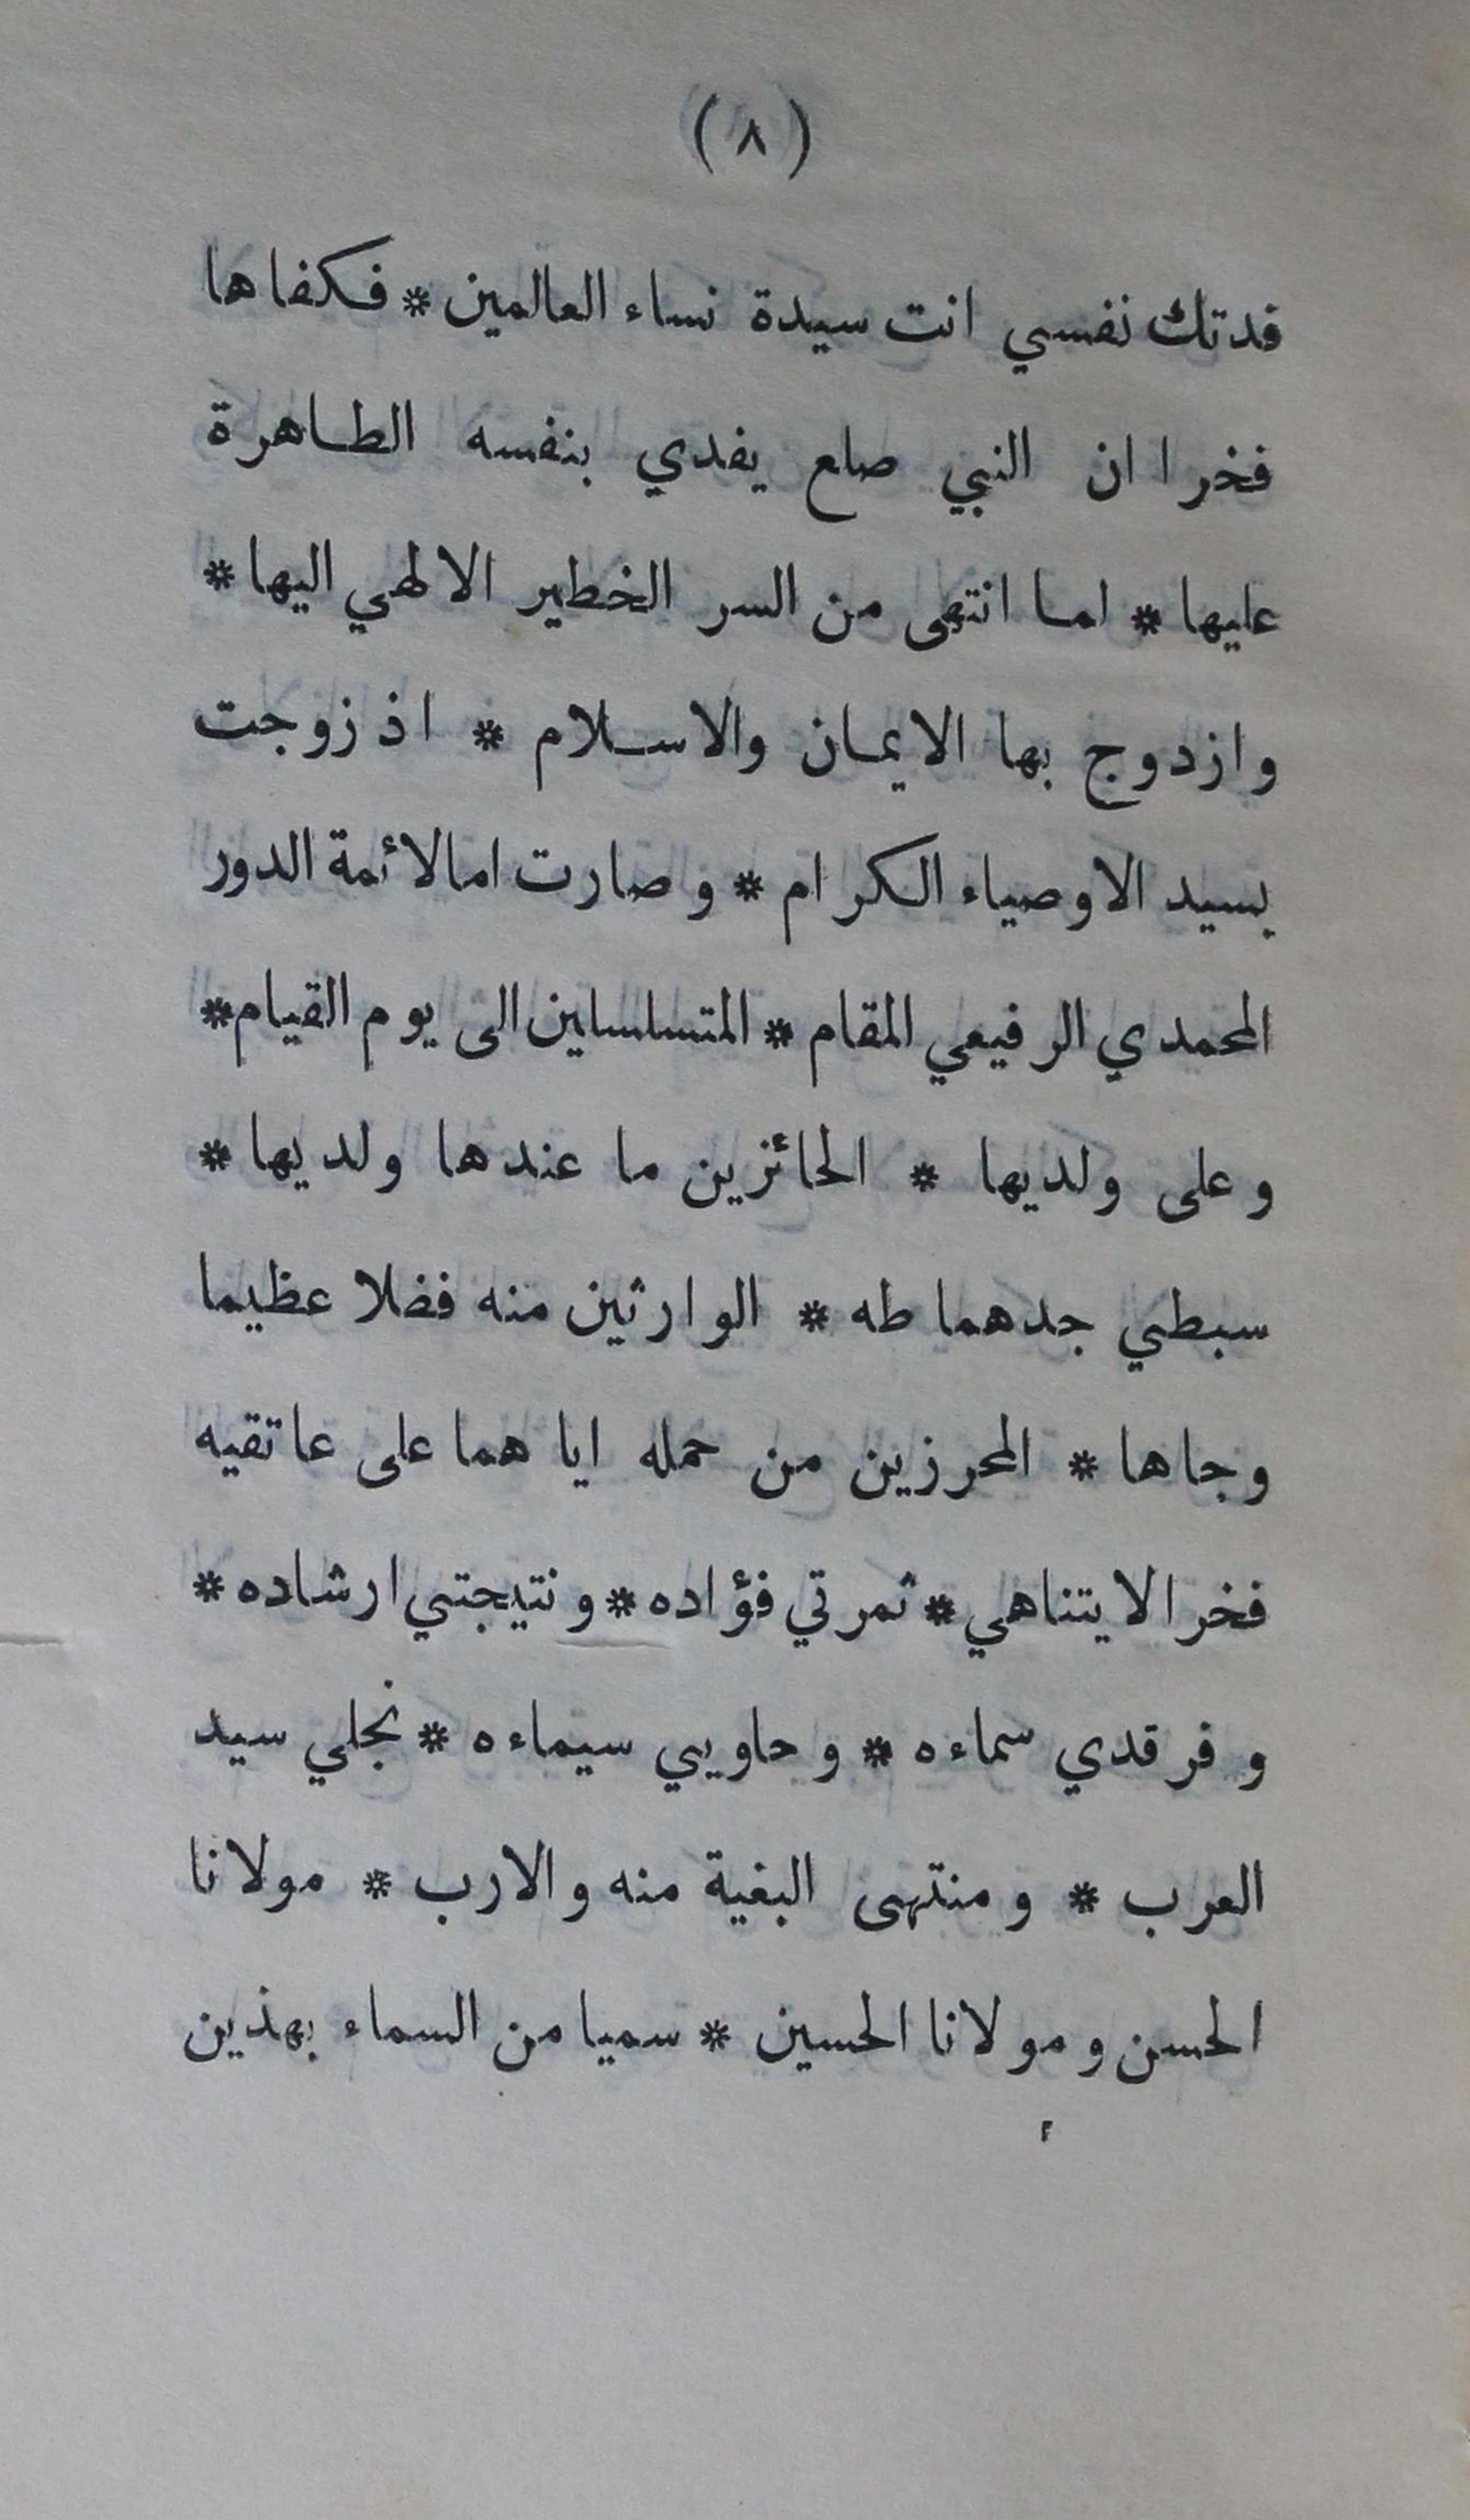 (٨)
فدتك نفسي انت سيدة نساء العالمين * فكفاها
فخرا ان النبي صلع يفدي بنفسه الطاهرة
عليها * لما انتهى من السر الخطير الالهي اليها *
وازدوج بها الايمان والاسلام * اذ زوجت
بسيد الاوصياء الكرام * وصارت اما لائمة الدور
المحمدي الرفيعي المقام * المتسلسلين الى يوم القيام *
وعلى ولديها * الحائزين ما عندها ولديها *
سبطي جدهما طه * الوارثين منه فضلا عظيما
وجاها * المحرزين من حمله اياهما على عاتقيه
فخرا لا يتناهي * ثمرتي فؤاده * ونتيجتي ارشاده *
وفرقدي سماءه * وحاويي سيماءه * نجلي سيد
العرب * ومنتهى البغية منه والارب * مولانا
الحسن ومولانا الحسين * سميا من السماء بهذين